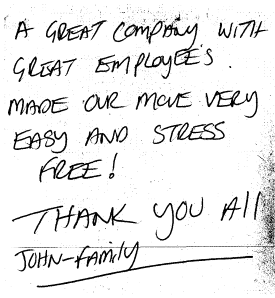 A GREAT COMPANY WITH
GREAT EMPLOYEE'S.
MADE OUR MOVE VERY
EASY AND STRESS
FREE!
THANK YOU All
JOHN-FAMILY